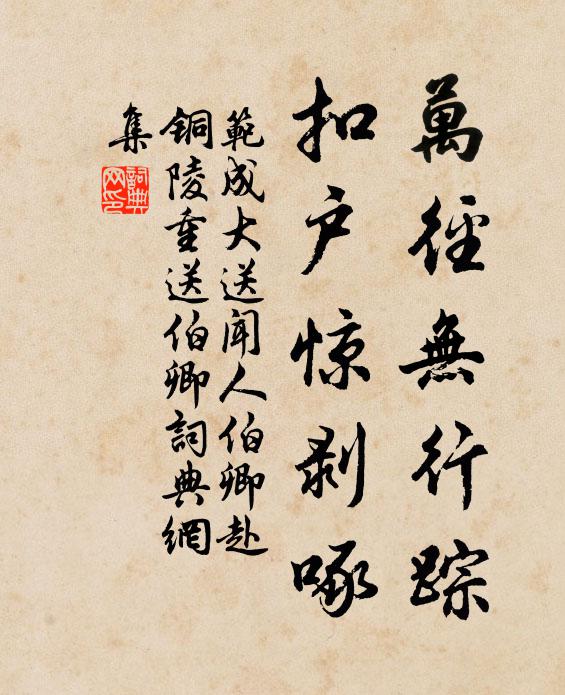 萬徑無行踪
扣户惊剥啄
範成大送闻人伯卿赴
铜陵重送伯卿詞典網
集
詞典
网印